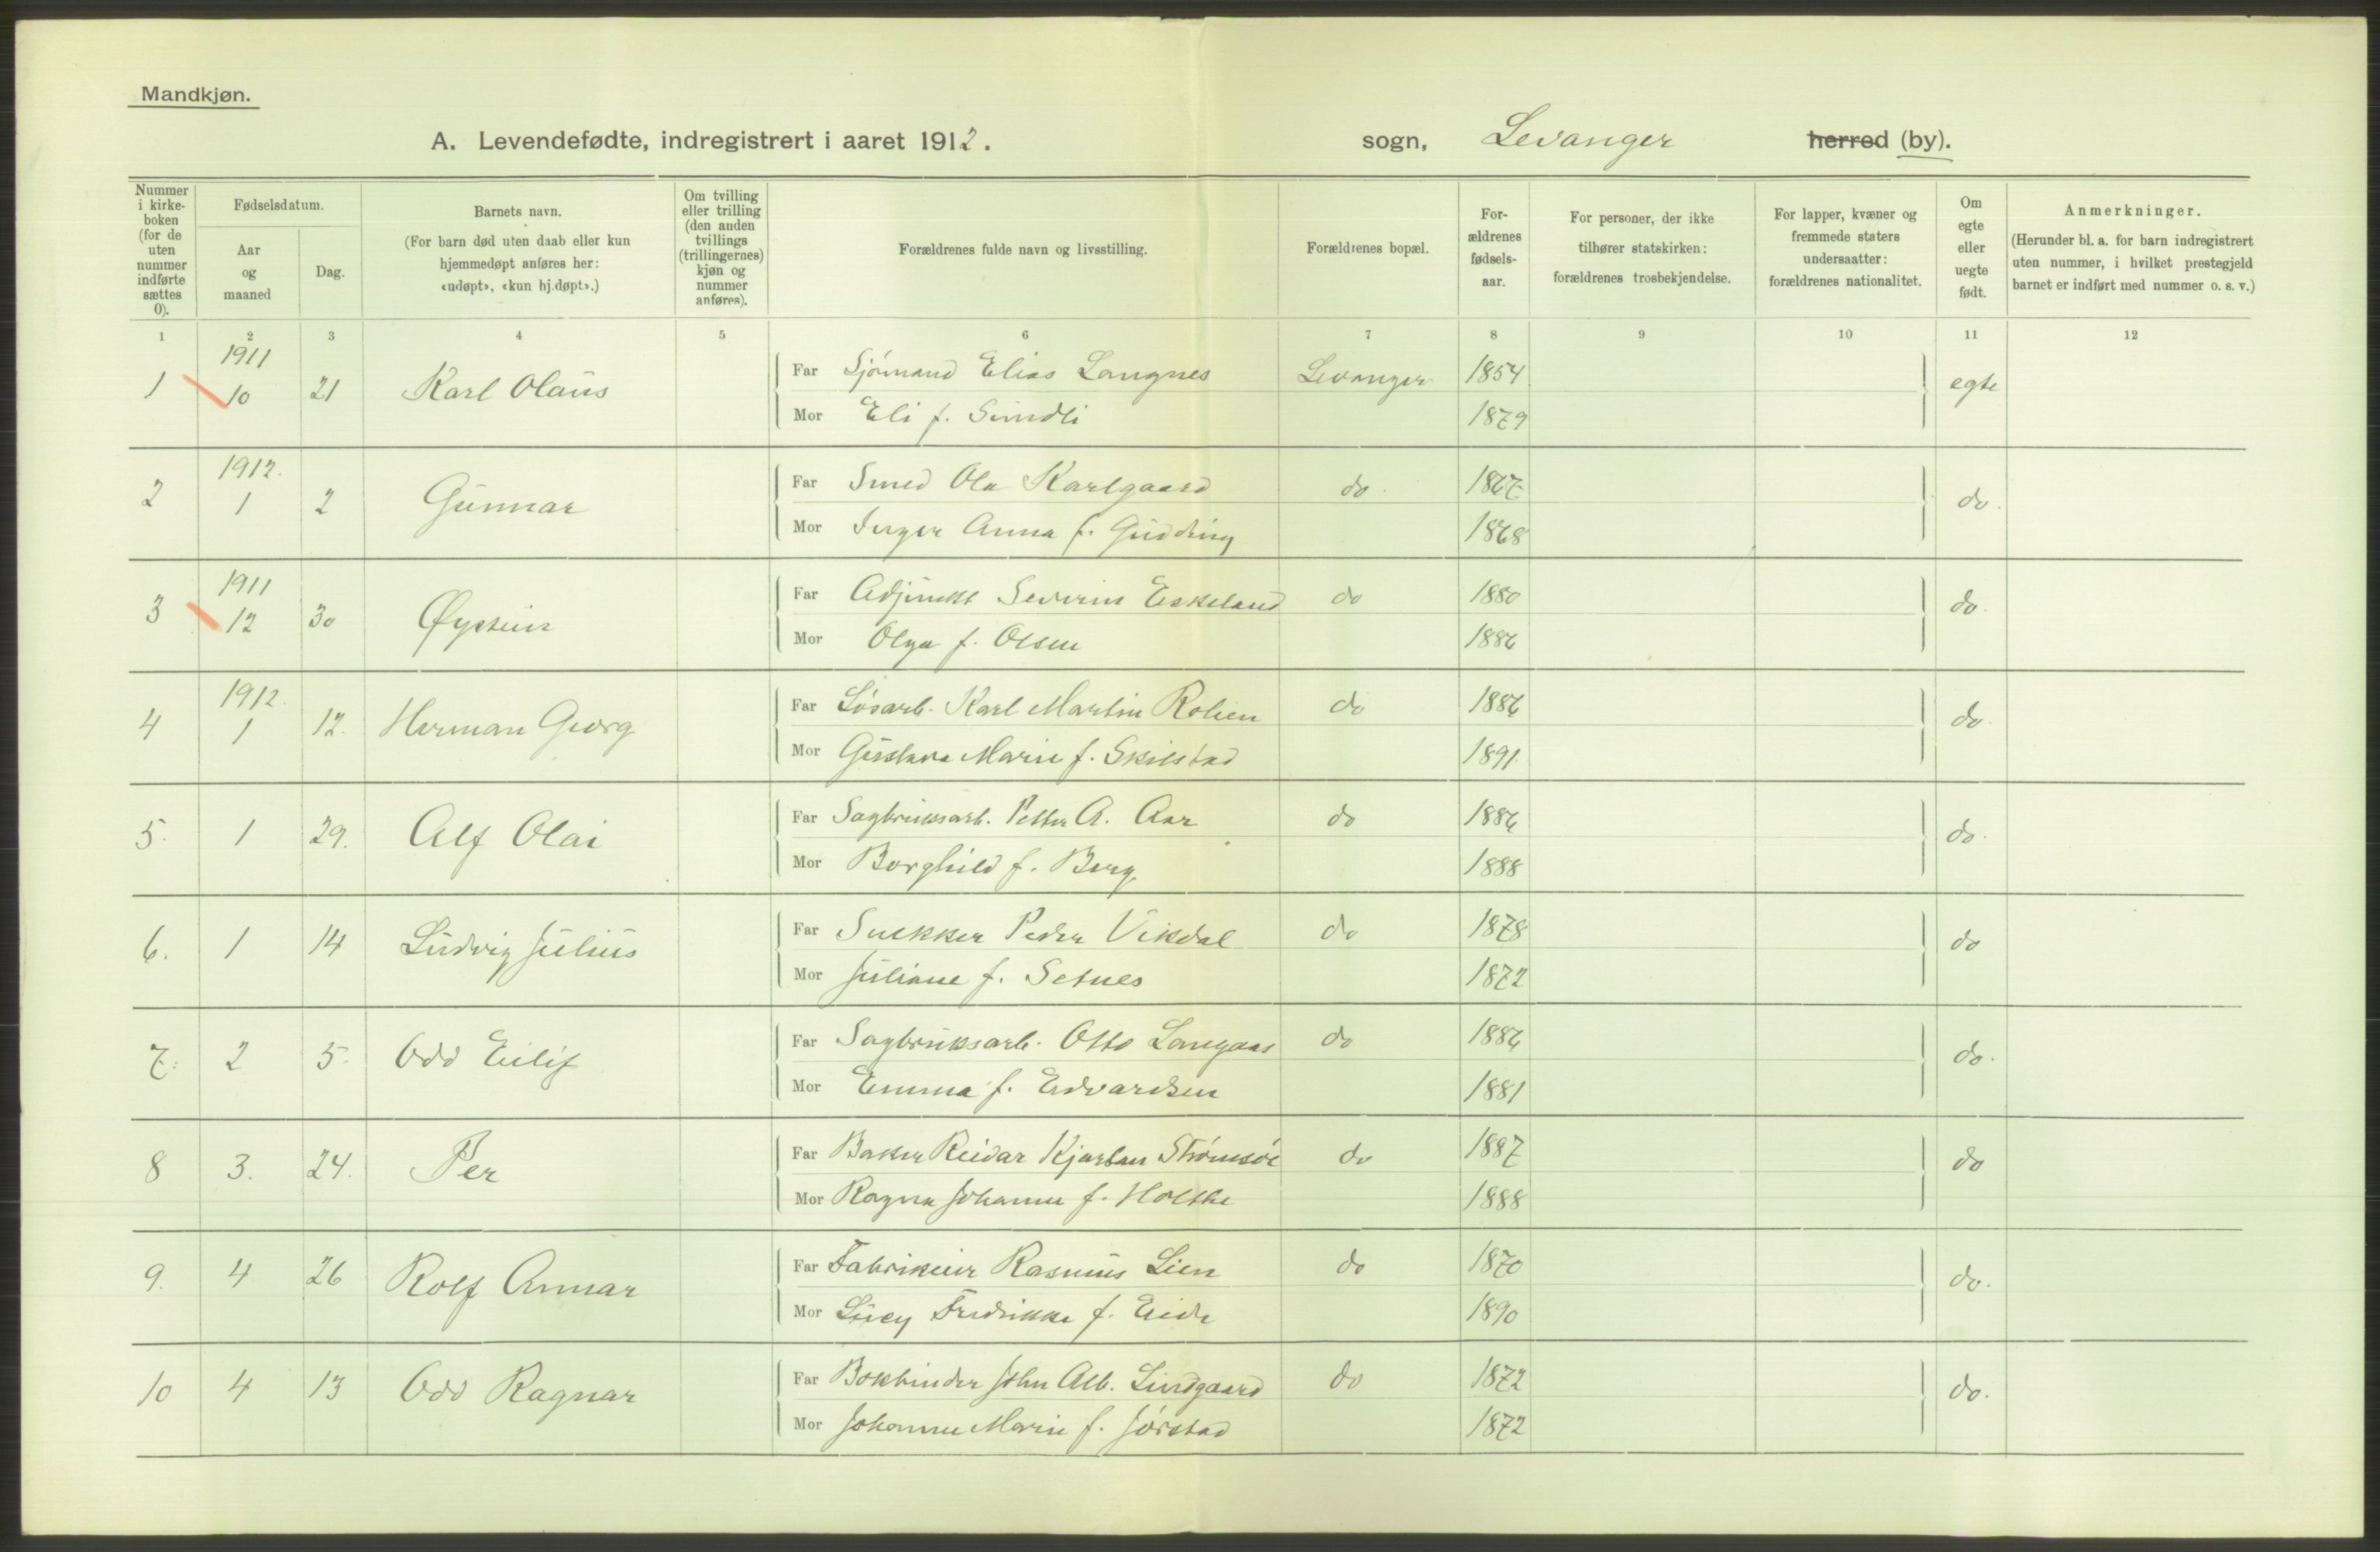 Mandkjøn.
A. Levendefødte, indregistrert i aaret 1912. sogn, Levanger herred (by).
Nummer i kirke-boken (for de uten nummer indførte sættes 0).
Fødselsdatum.
Aar og maaned
Dag.
Barnets navn.
(For barn død uten daab eller kun hjemmedøpt anføres her: «udøpt», «kun hj.døpt».)
Om tvilling eller trilling (den anden tvillings (trillingernes) kjøn og nummer anføres).
Forældrenes fulde navn og livsstilling.
Forældrenes bopæl.
For-ældrenes fødsels-aar.
For personer, der ikke tilhører statskirken: forældrenes trosbekjendelse.
For lapper, kvæner og fremmede staters undersaatter: forældrenes nationalitet.
Om egte eller uegte født.
Anmerkninger.
(Herunder bl. a. for barn indregistrert uten nummer, i hvilket prestegjeld barnet er indført med nummer o. s. v.)
1 2 3 4 5 6 7 8 9 10 11 12
1911
1 10 21 Karl Olaus Far Sjømand Elias Langnes Levanger 1854 egte
Mor Eli f. Sundli 1879
1912.
2 1 2 Gunnar Far Smed Ola Karlgaard do. 1867 do.
Mor Inger Anna f. Gudding 1868
1911
3 12 30 Øystein Far Adjunkt Severin Eskeland do 1880 do.
Mor Olga f. Olsen 1886
1912.
4 1 12. Herman Georg Far Løsarb. Karl Martin Rolien do 1886 do.
Mor Gustava Marie f. Skilstad 1891.
5. 1 29. Alf Olai Far Sagbruksarb. Petter A. Aar do 1886 do.
Mor Borghild f. Berg 1888
6. 1 14 Ludvig Julius Far Snekker Peder Vikdal do 1878 do
Mor Juliane f. Setnes 1872
7. 2 5. Odd Eilif Far Sagbruksarb. Otto Langaas do 1886 do.
Mor Emma f. Edvardsen 1881
8 3. 24. Per Far Baker Reidar Kjartan Strømsøe do 1887 do
Mor Ragna Johanne f. Holthe 1888
9. 4 26 Rolf Annar Far Fabrikeier Rasmus Lien do 1870 do.
Mor Lucy Fredrikke f. Eide 1890
10 4 13 Odd Ragnar Far Bokbinder John Alb. Lindgaard do 1872 do.
Mor Johanne Marie f. Jørstad 1872